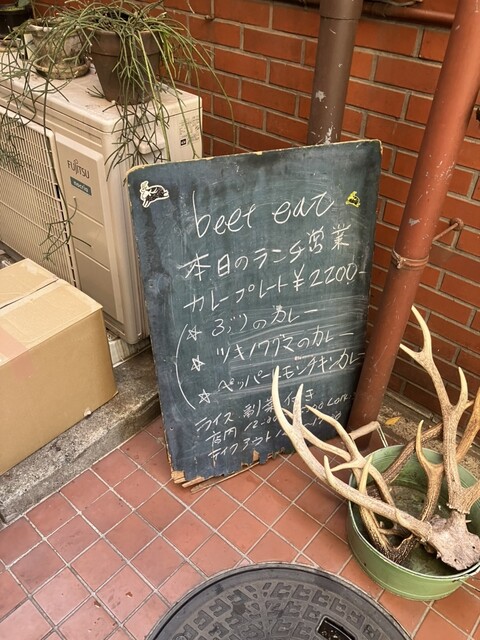 FUJITSU
beet eat
本日のランチ営業
カレープレート ¥2200-
☆ ぶりのカレー
☆ ツキノワグマのカレー
☆ ペッパーレモンチキンカレー
ライス 副菜 付き
店内 12:00
テイクアウト